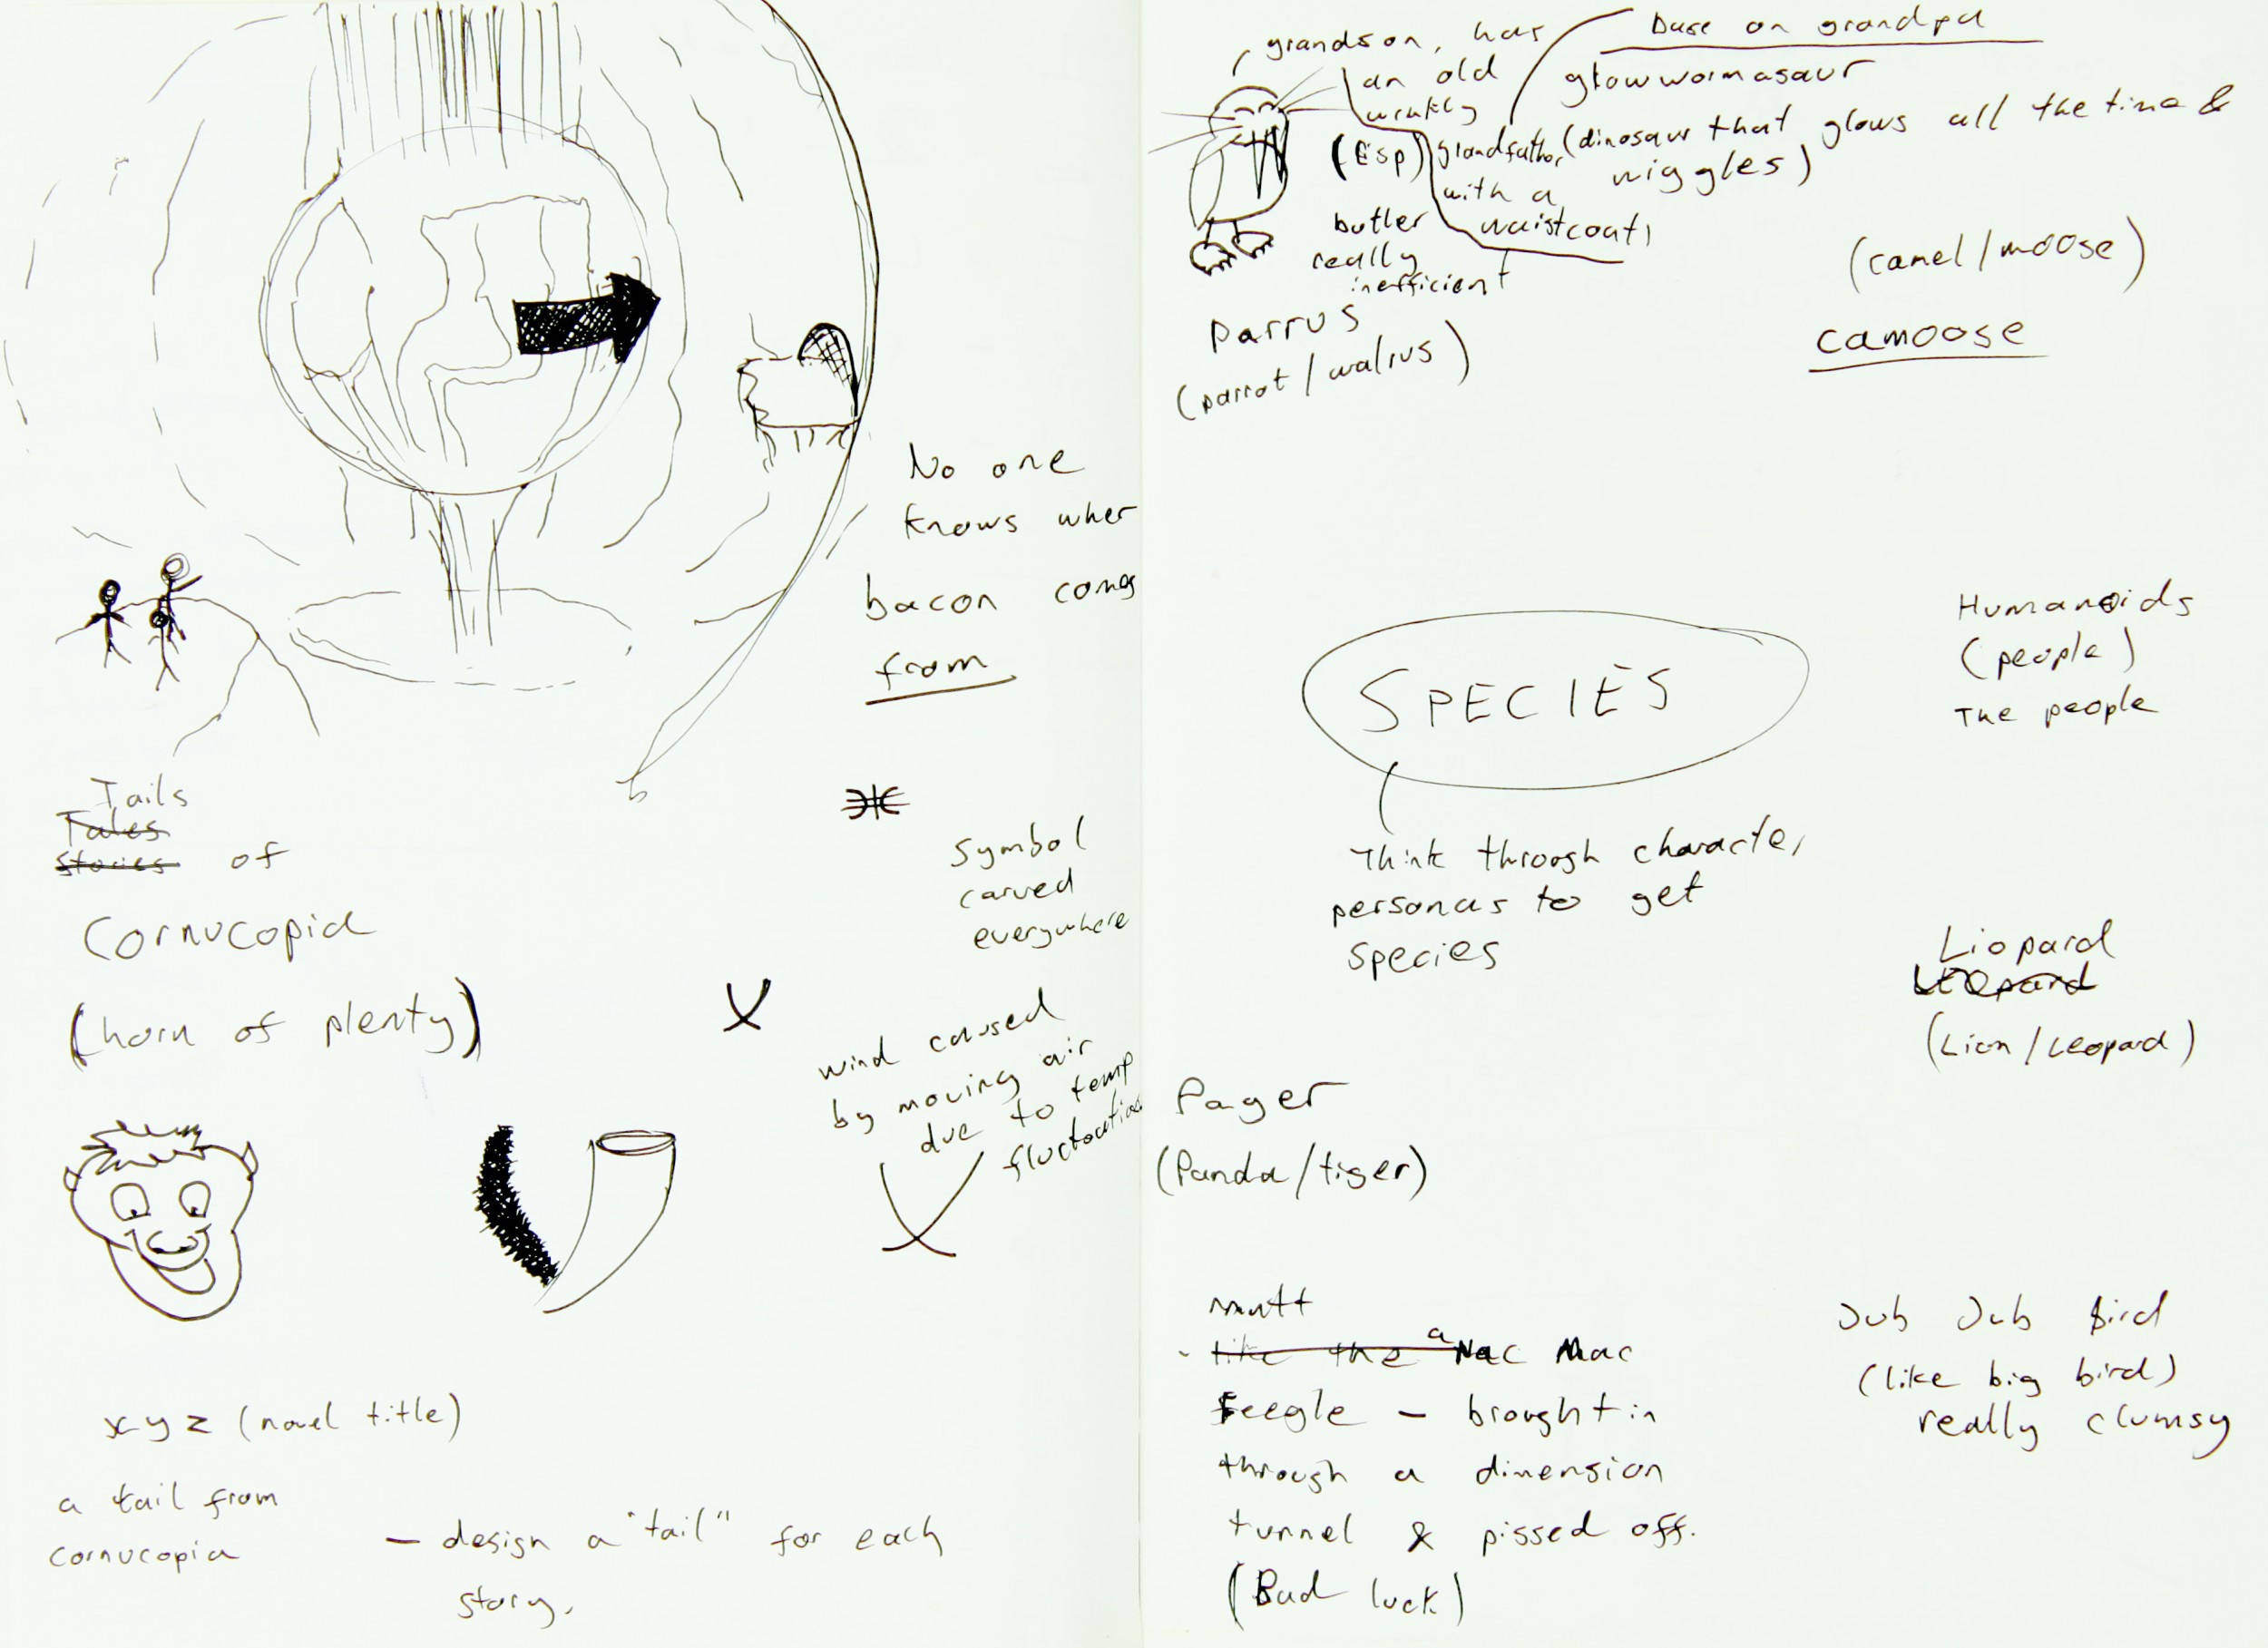 No one
knows wher
bacon comes
from
Tails
Tales
Stories of
Cornucopia
(horn of plenty)
Symbol
carved
everywhere
wind caused
by moving air
due to temp
fluctuation
xyz (novel title)
a tail from
cornucopia
- design a "tail" for each
story.
base on grandpa
grandson, has
an old
wrinkly
grandfather
with a
waistcoat)
(lisp)
butler
really
inefficient
Parrus
(parrot/walrus)
glowwormasaur
(dinosaur that glows all the time &
wiggles)
(camel/moose)
camoose
SPECIES
Think through character
personas to get
species
Humanoids
(people)
The people
Liopard
(Lion/Leopard)
Pager
(Panda/tiger)
mutt
- like the a Nac Mac
Feegle - brought in
through a dimension
tunnel & pissed off.
(Bad luck)
Jub Jub Bird
(like big bird)
really clumsy